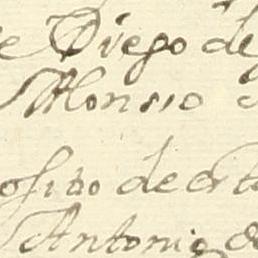 e Diego de
Alonsso
osito de esta
Antonio de